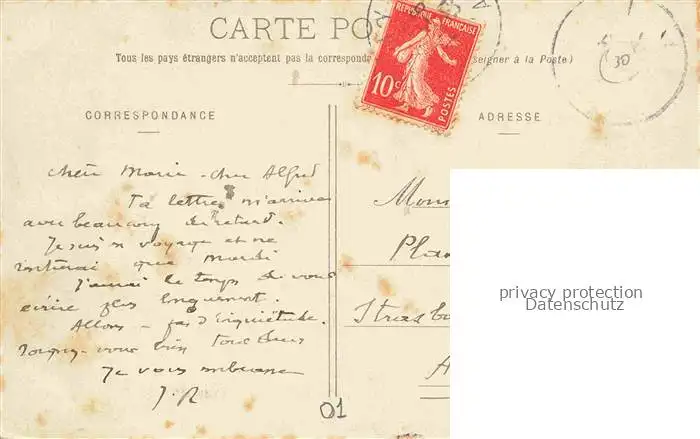 CARTE PO
Tous les pays étrangers n'acceptent pas la correspondance (se renseigner à la Poste)
RÉPUBLIQUE FRANÇAISE
10c
POSTES
30
CORRESPONDANCE
ADRESSE
chère Marie - cher Alfred
Ta lettre m'arrive
avec beaucoup de retard.
Je suis en voyage et ne
rentrerai que mardi
J'aurai le temps de vous
écrire plus longuement.
Allons - pas d'inquiétude.
Soignez-vous bien tous deux
Je vous embrasse
J. R
01
Mons
Plan
Strasbo
A
privacy protection
Datenschutz